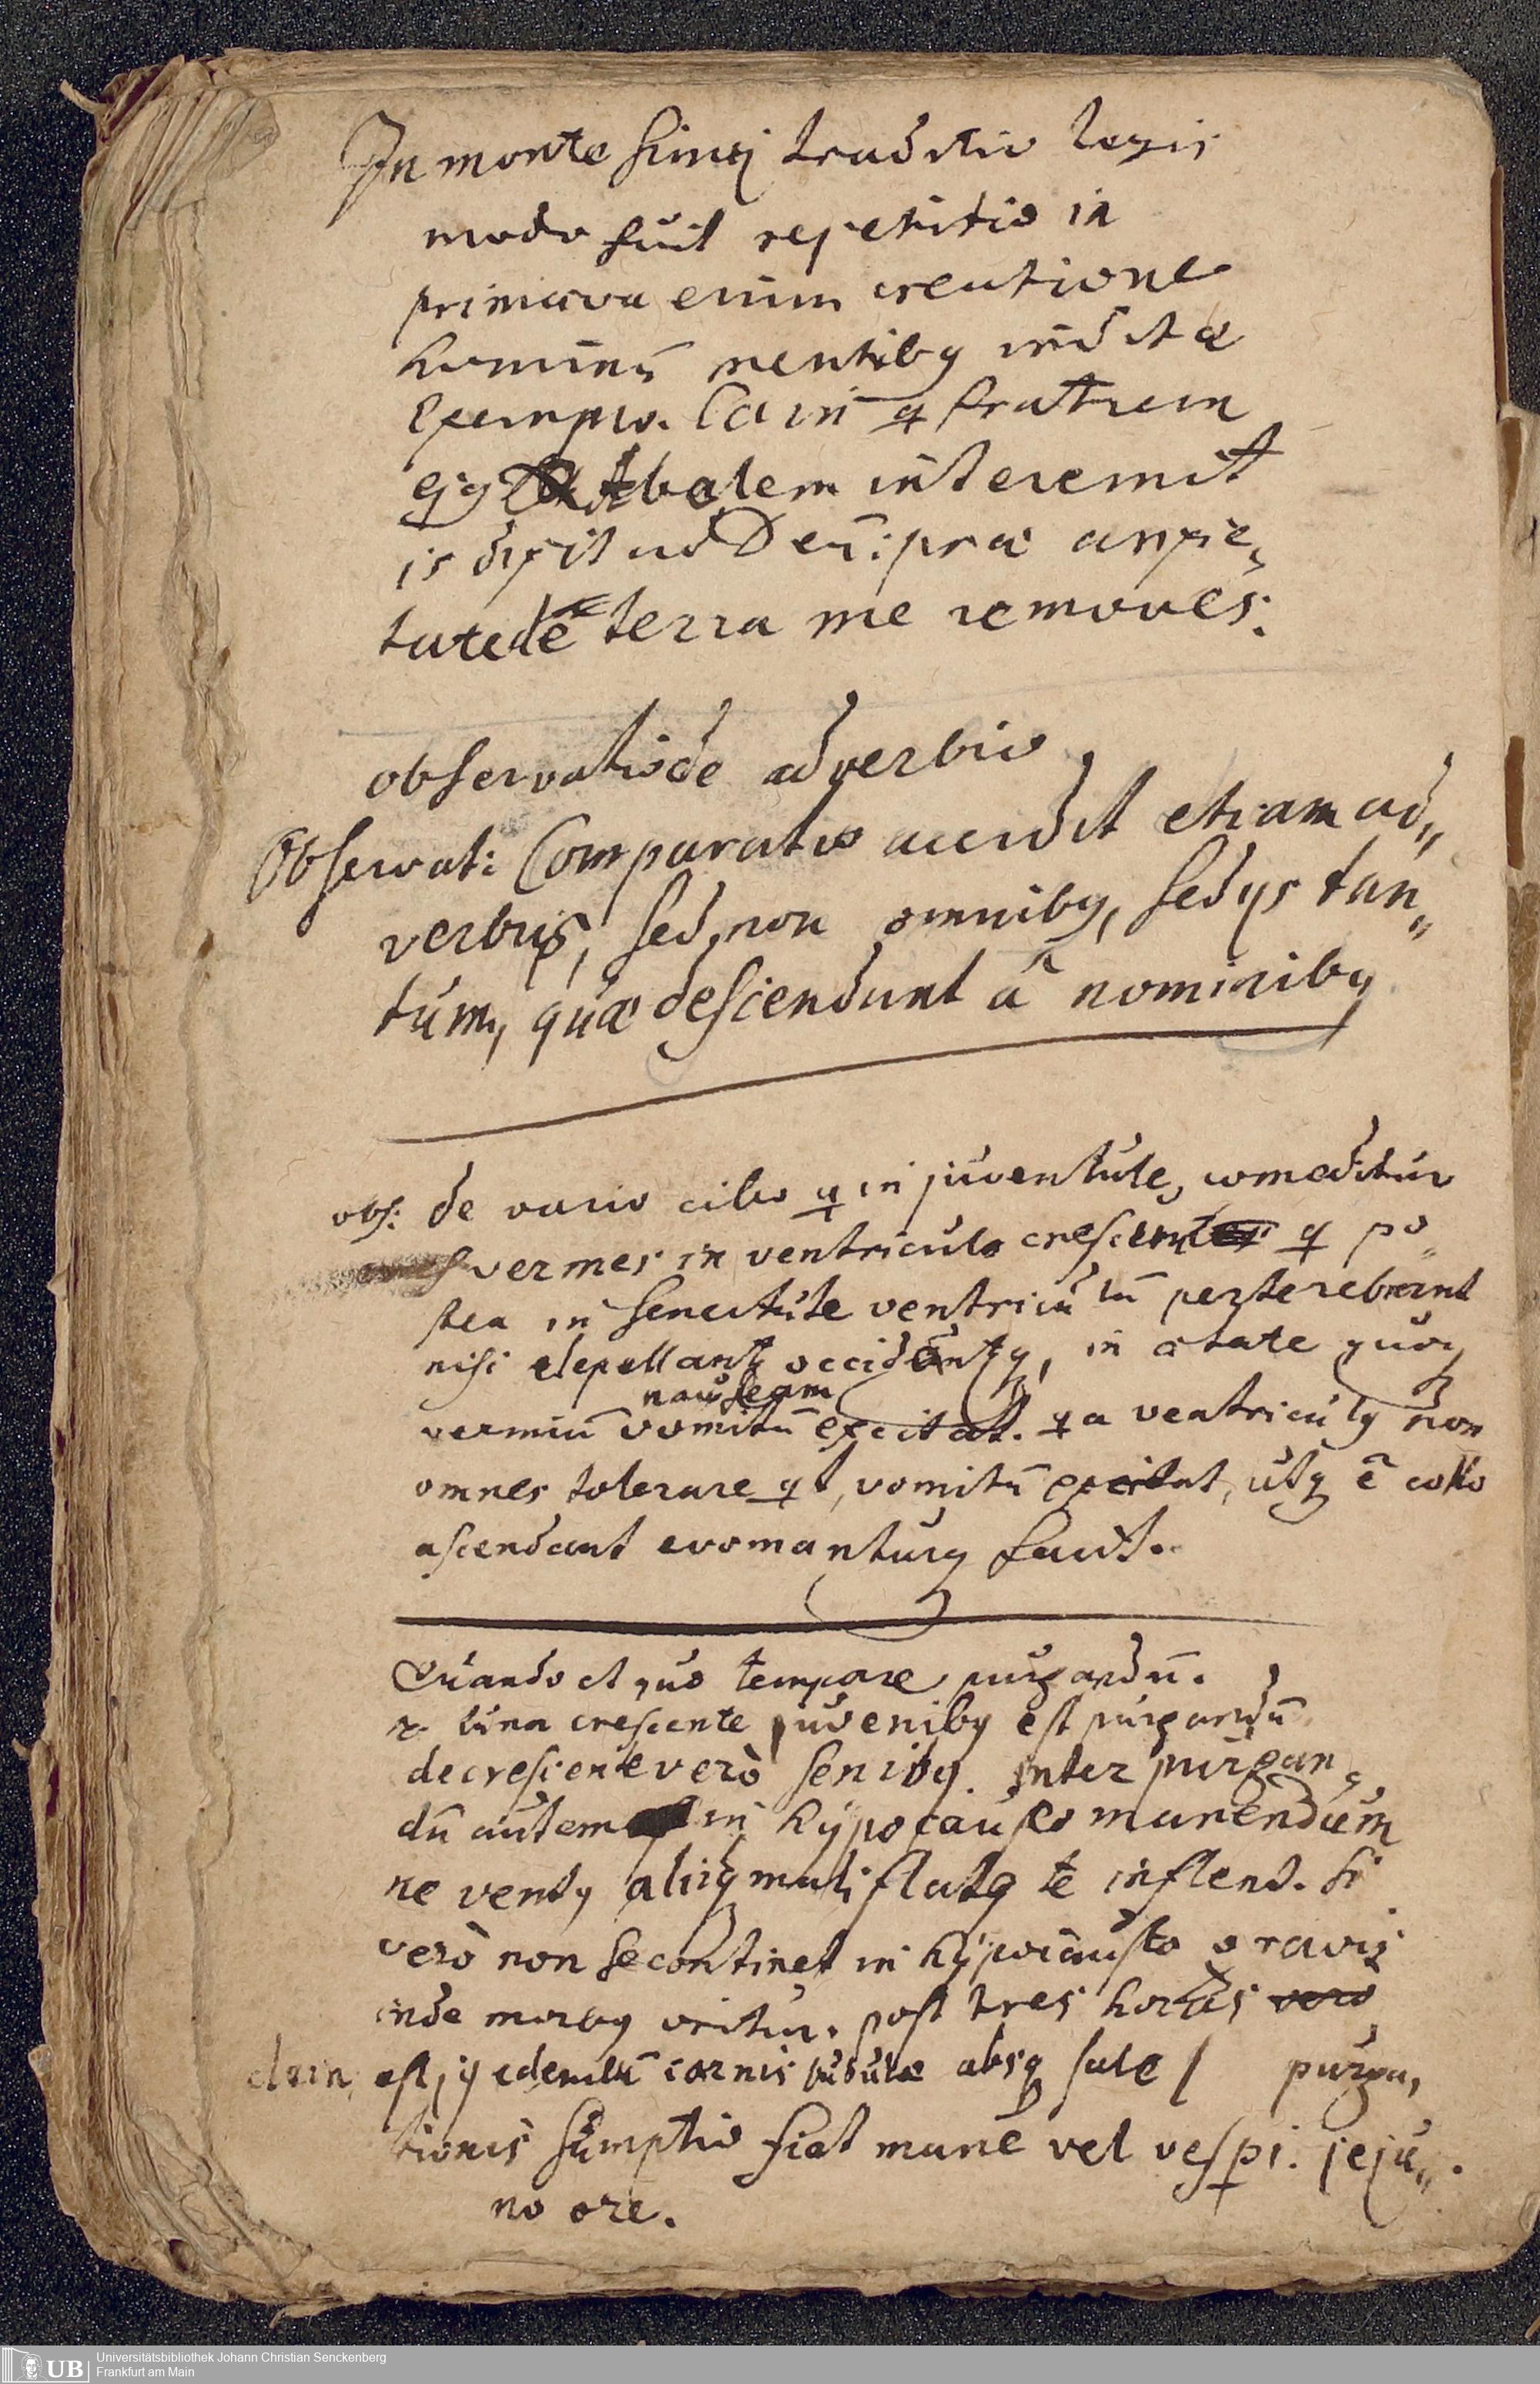 In monte Sinaj traditio legis
modo fuit repetitio in
primæva enim creatione
hominū mentibq indita
Exemplo. Cain q fratrem
ejq Abelem interemit
is dixit ad Deū: præ anxie„
tate de terra me removes.
observatio de adverbio
Observat: Comparatio accidit etiam ad„
verbijs, sed non omnibq, sed ijs tan„
tum, quæ descendunt â nominibq
obs: de vario cibo q in juventute, comeditur
vermes in ventriculo crescunt q po„
stea in senectute ventriculū perterebrant
nisi expellantq occidantq, in ætate quoq
nauseam
vermiū vomitū excitat. q a ventriculq non
omnes tolerare qt, vomitū excitat, utq ê collo
ascendant evomanturq facit.
Quando et quo tempore purgandū.
r. luna crescente juvenibq est purgandū
decrescente verò senibq. inter purgan„
dū autem in hypocausto manendum
ne ventq aliiq mali flatq te inflent. si
verò non se contine͂t in hypocausto gravis
inde morbq oritur. post tres horas vero
est, edendū carnis bubulæ absq sale / purga„
tionis sumptio fiat mane vel vesp̱i. jeju„
no ore.
Universitätsbibliothek Johann Christian Senckenberg
Frankfurt am Main
UB